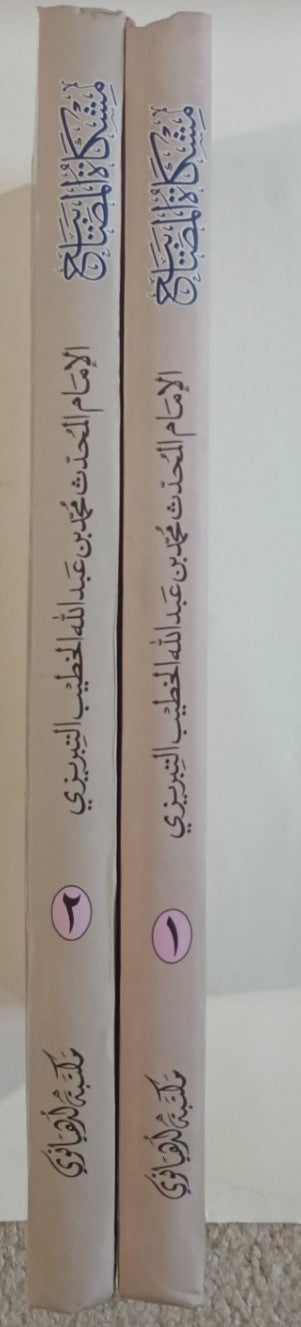 مِشْكَاةُ الْمَصَابِيْح
الإمَام المُحدّث مُحمّد بن عَبد الله الخطيْب التِبريزي
٢
مكتبة لدهيانوي
مِشْكَاةُ الْمَصَابِيْح
الإمَام المُحدّث مُحمّد بن عَبد الله الخطيْب التِبريزي
١
مكتبة لدهيانوي